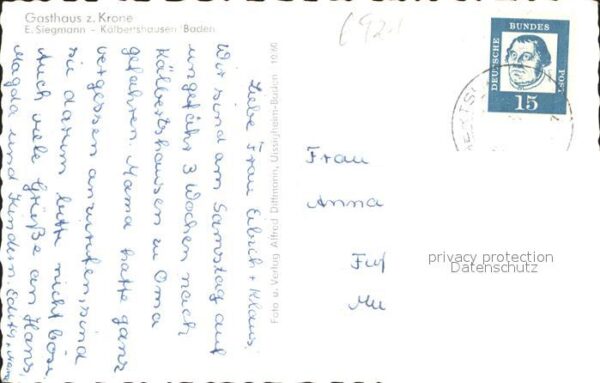 Gasthaus z. Krone
E. Siegmann - Kälbertshausen/Baden
(6921
DEUTSCHE BUNDES POST
15
Liebe Frau Eirich + Klaus.
Wir sind am Samstag auf
ungefähr 3 Wochen nach
Kälbertshausen zu Oma
gefahren. Mama hatte ganz
vergessen anzurufen, sind
sie darum bitte nicht böse.
Auch viele Grüße an Hans,
Magda und Kindern
Foto u. Verlag Alfred Dittmann, Ussingheim-Baden 10.60
Frau
Anna
privacy protection
Datenschutz